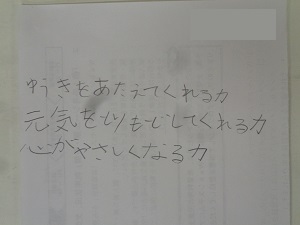 ゆうきをあたえてくれる力
元気をとりもどしてくれる力
心がやさしくなる力